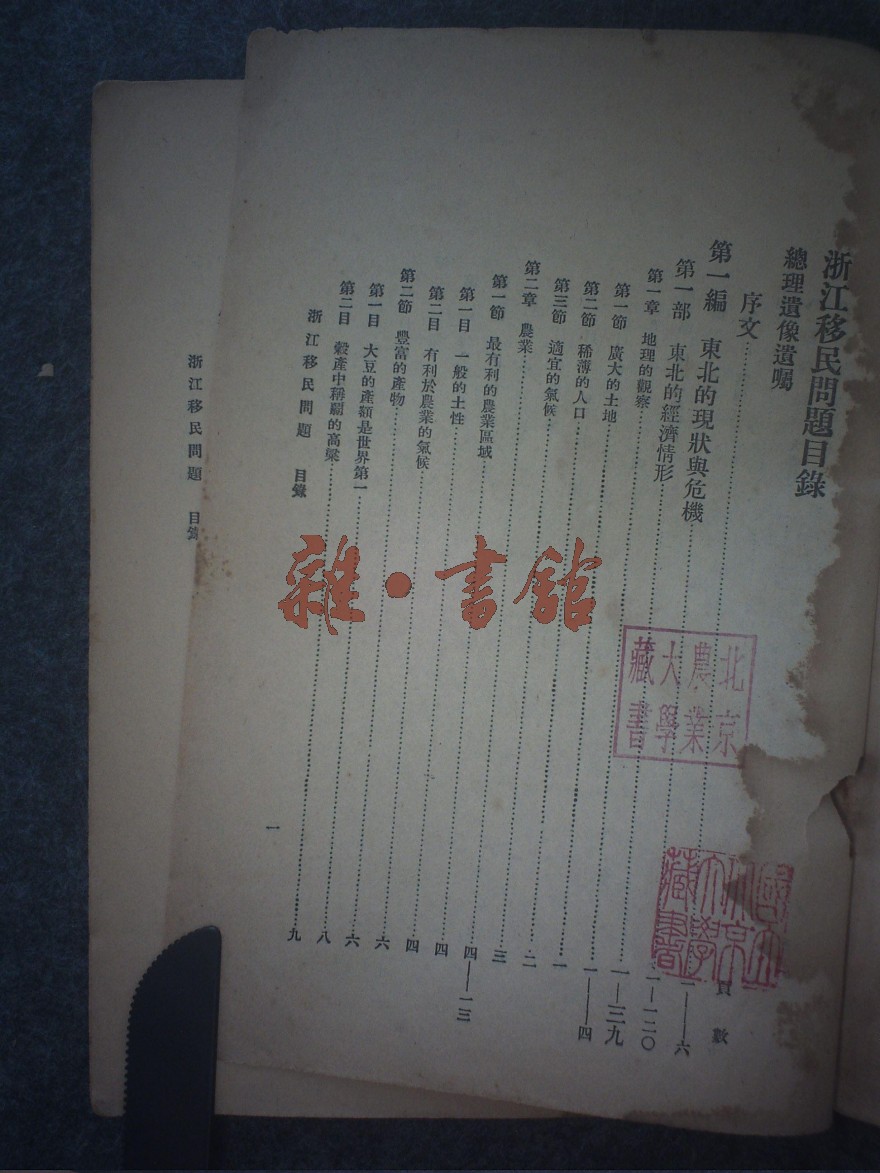 浙江移民問題目錄
總理遺像遺囑
頁數
序文……一——六
第一編 東北的現狀與危機……一—一二〇
第一部 東北的經濟情形……一——三九
第一章 地理的觀察……一——四
第一節 廣大的土地……一
第二節 稀薄的人口……二
第三節 適宜的氣候……三
第二章 農業……四——一三
第一節 最有利的農業區域……四
第一目 一般的土性……四
第二目 有利於農業的氣候……六
第二節 豐富的產物……六
第一目 大豆的產額是世界第一……八
第二目 穀產中稱霸的高粱……九
浙江移民問題 目錄
一
浙江移民問題 目錄
北京農業大學藏書
雜·書館